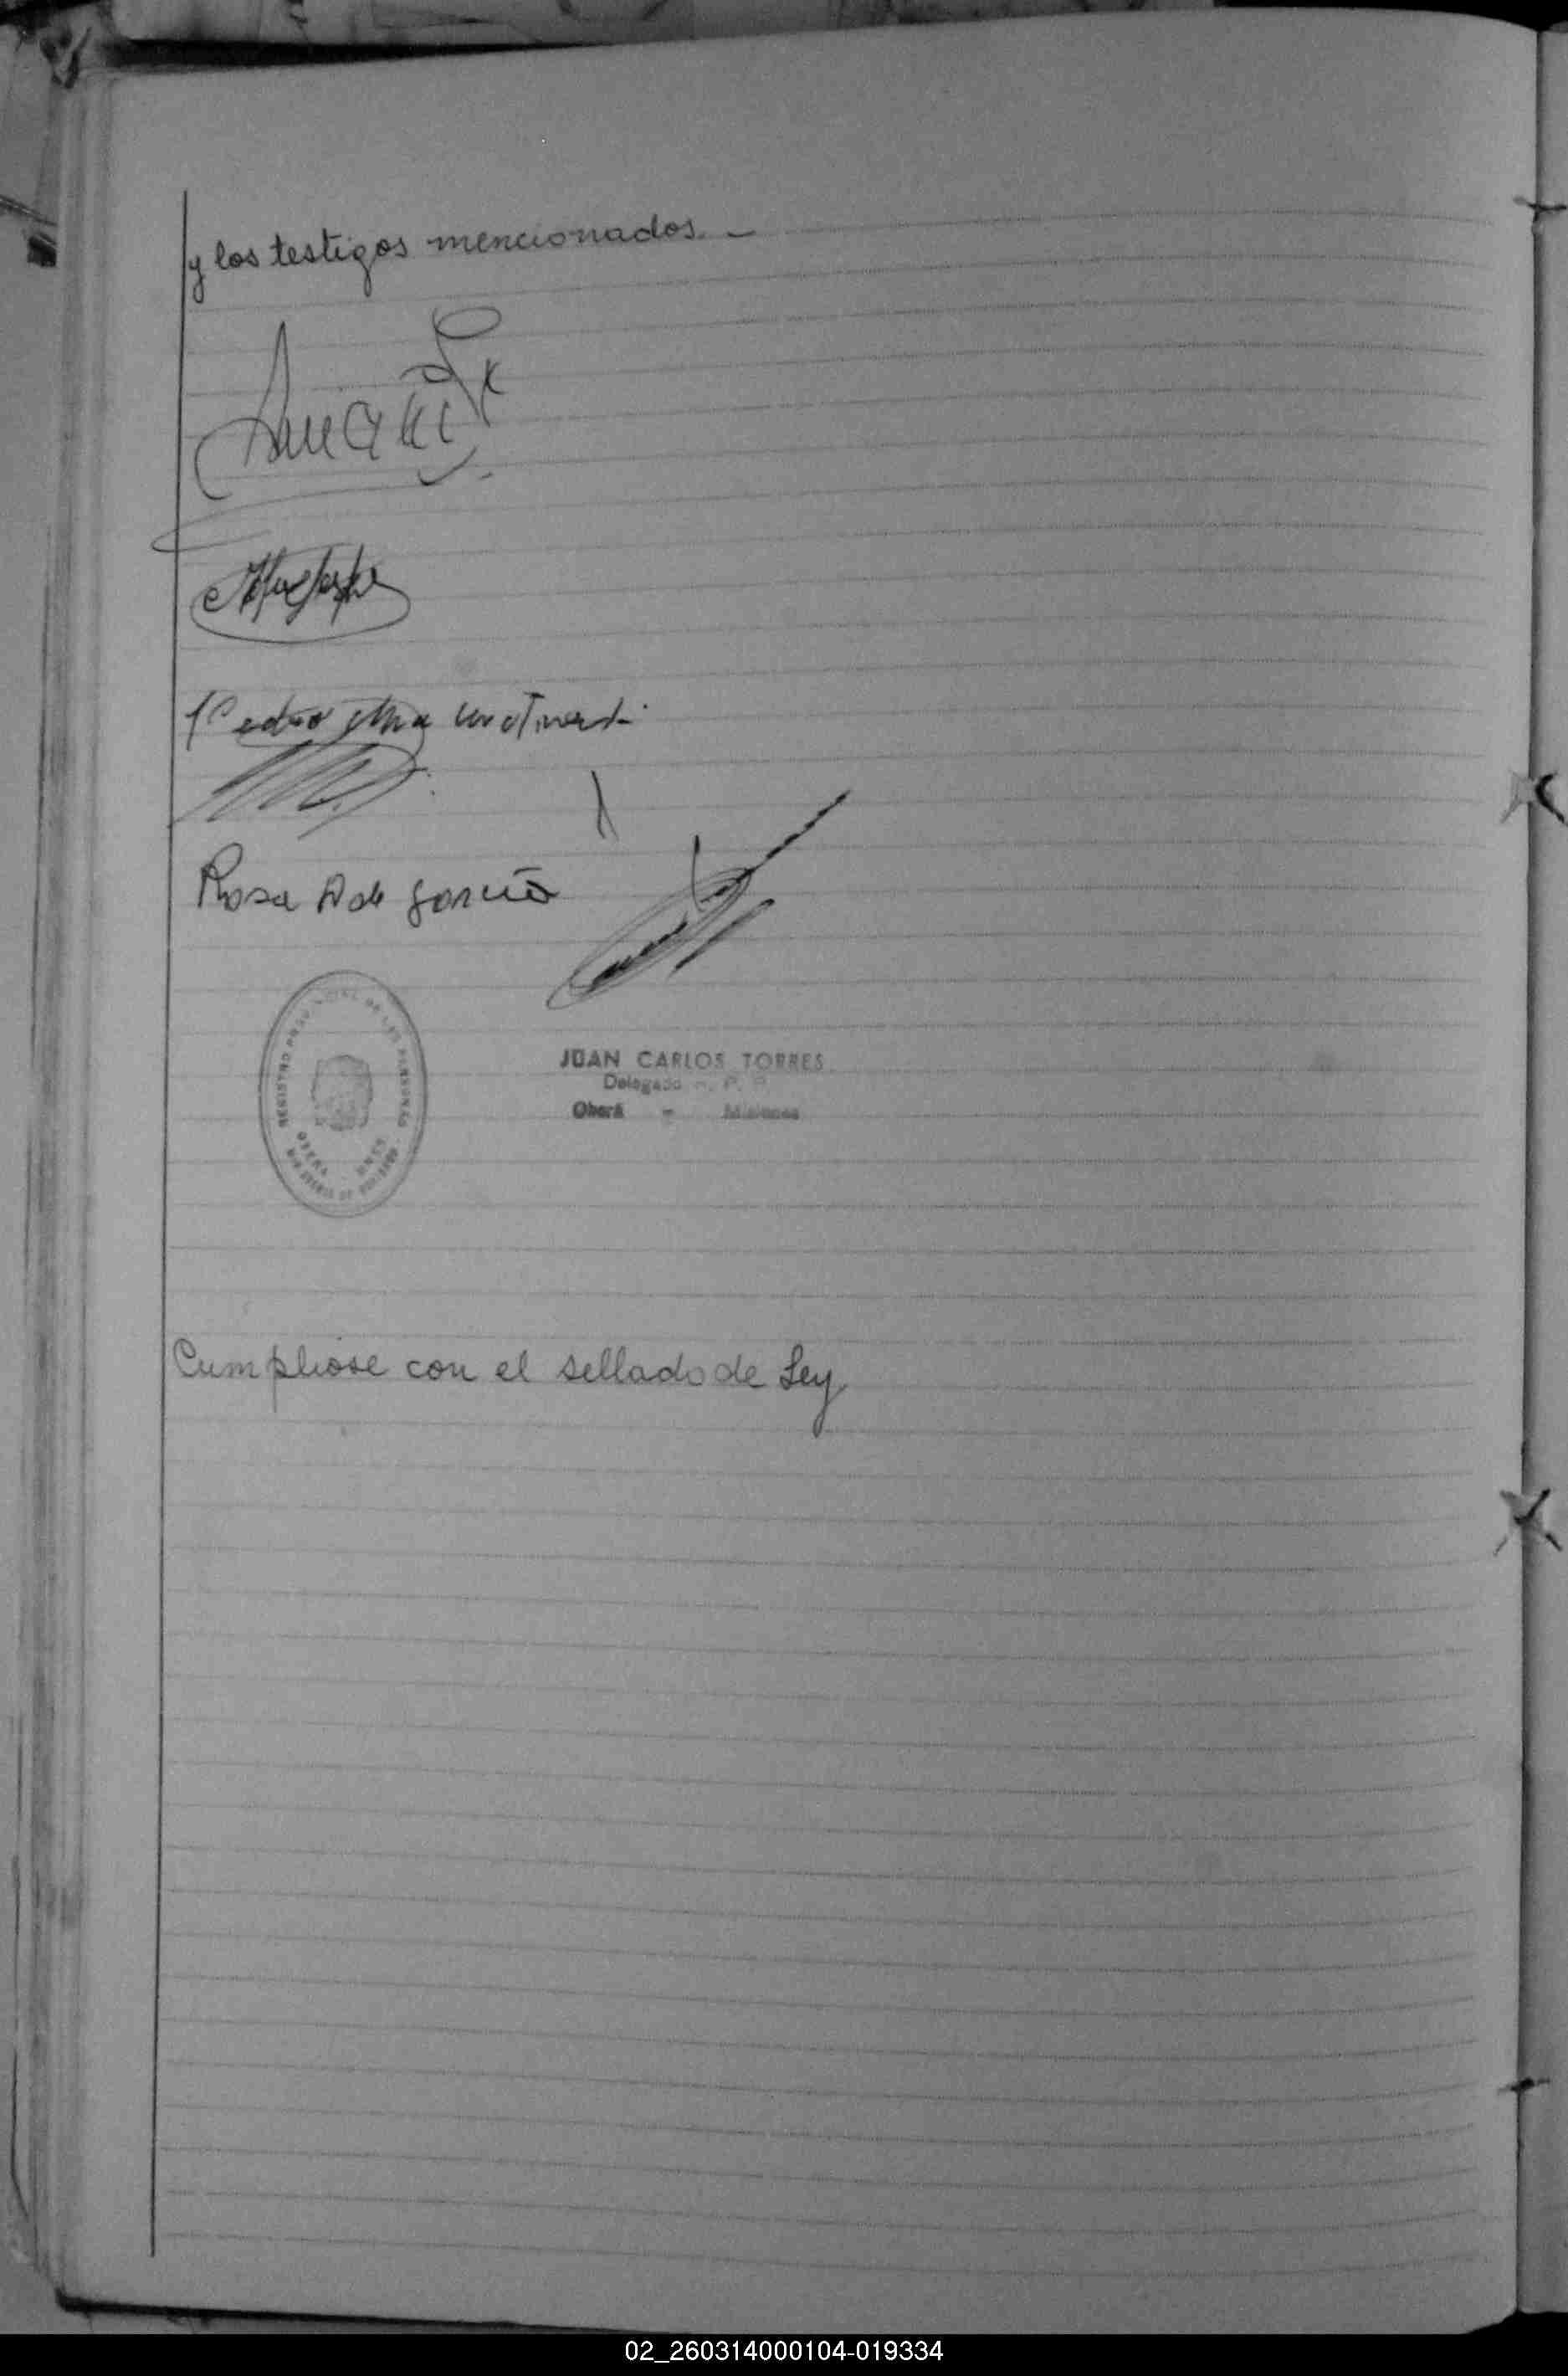 y los testigos mencionados. -
Pedro
Rosa A de García
REGISTRO PROVINCIAL DE LAS PERSONAS
OBERA
JUAN CARLOS TORRES
Delegado R. P. P.
Oberá - Misiones
Cumpliose con el sellado de Ley
02_260314000104-019334